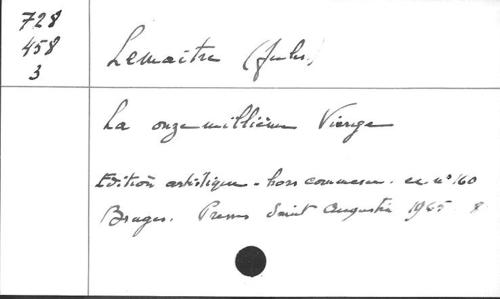 728
458
3
Lemaitre (Jules)
La onzemillième Vierge
Edition artistique - hors commerce. ex. n° 160
Bruges. Presses Saint Augustin 1965 8